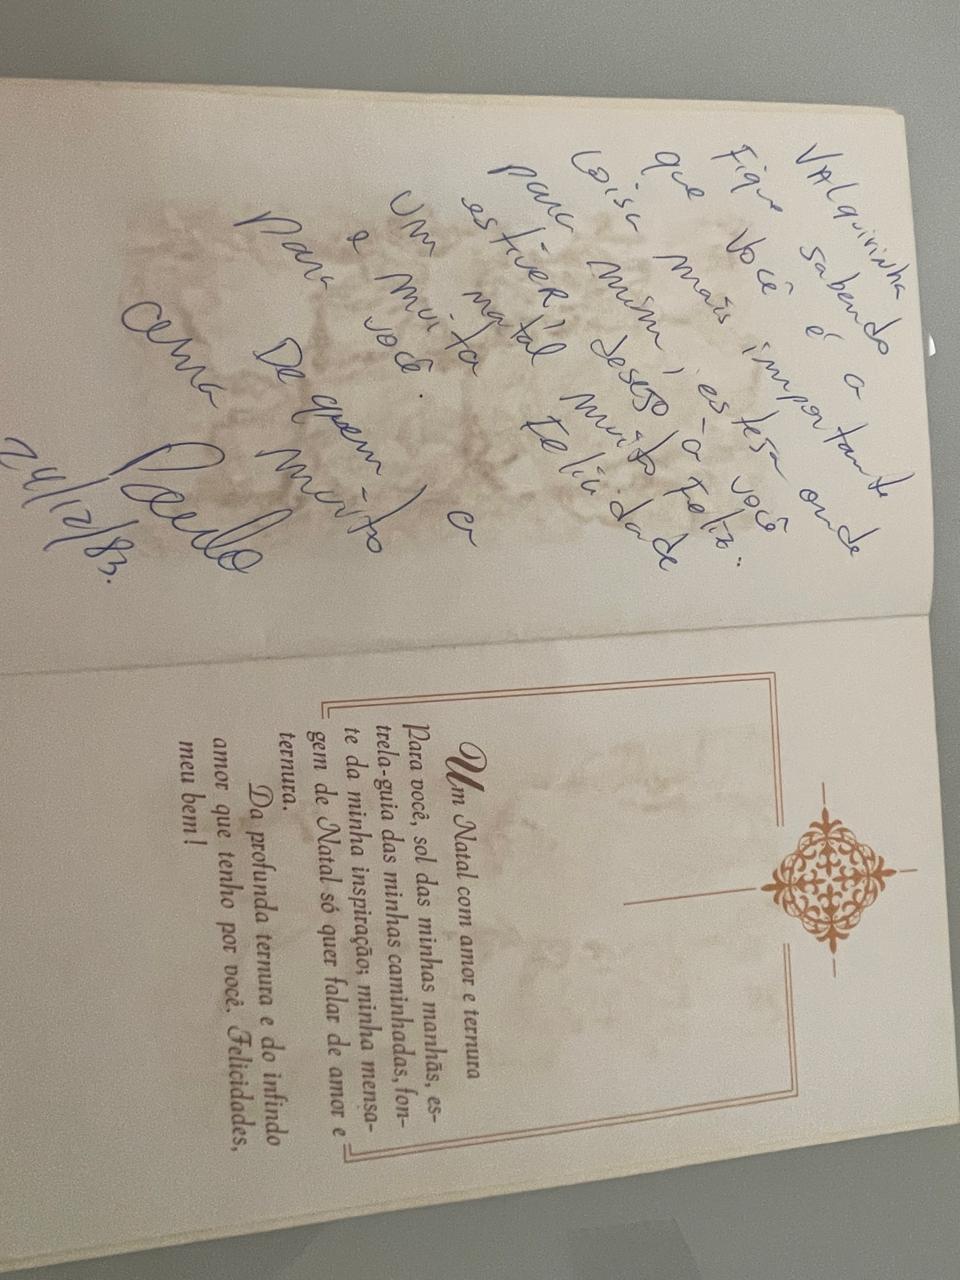 VALquirinha
Fique sabendo
que você é a
coisa mais importante
para mim, esteja onde
estiver, desejo à você
um natal muito Feliz.
e muita Felicidade
para você.
De quem a
ama muito
Paulo
24/12/83.
Um Natal com amor e ternura
Para você, sol das minhas manhãs, es-
trela-guia das minhas caminhadas, fon-
te da minha inspiração; minha mensa-
gem de Natal só quer falar de amor e
ternura.
Da profunda ternura e do infindo
amor que tenho por você. Felicidades,
meu bem!